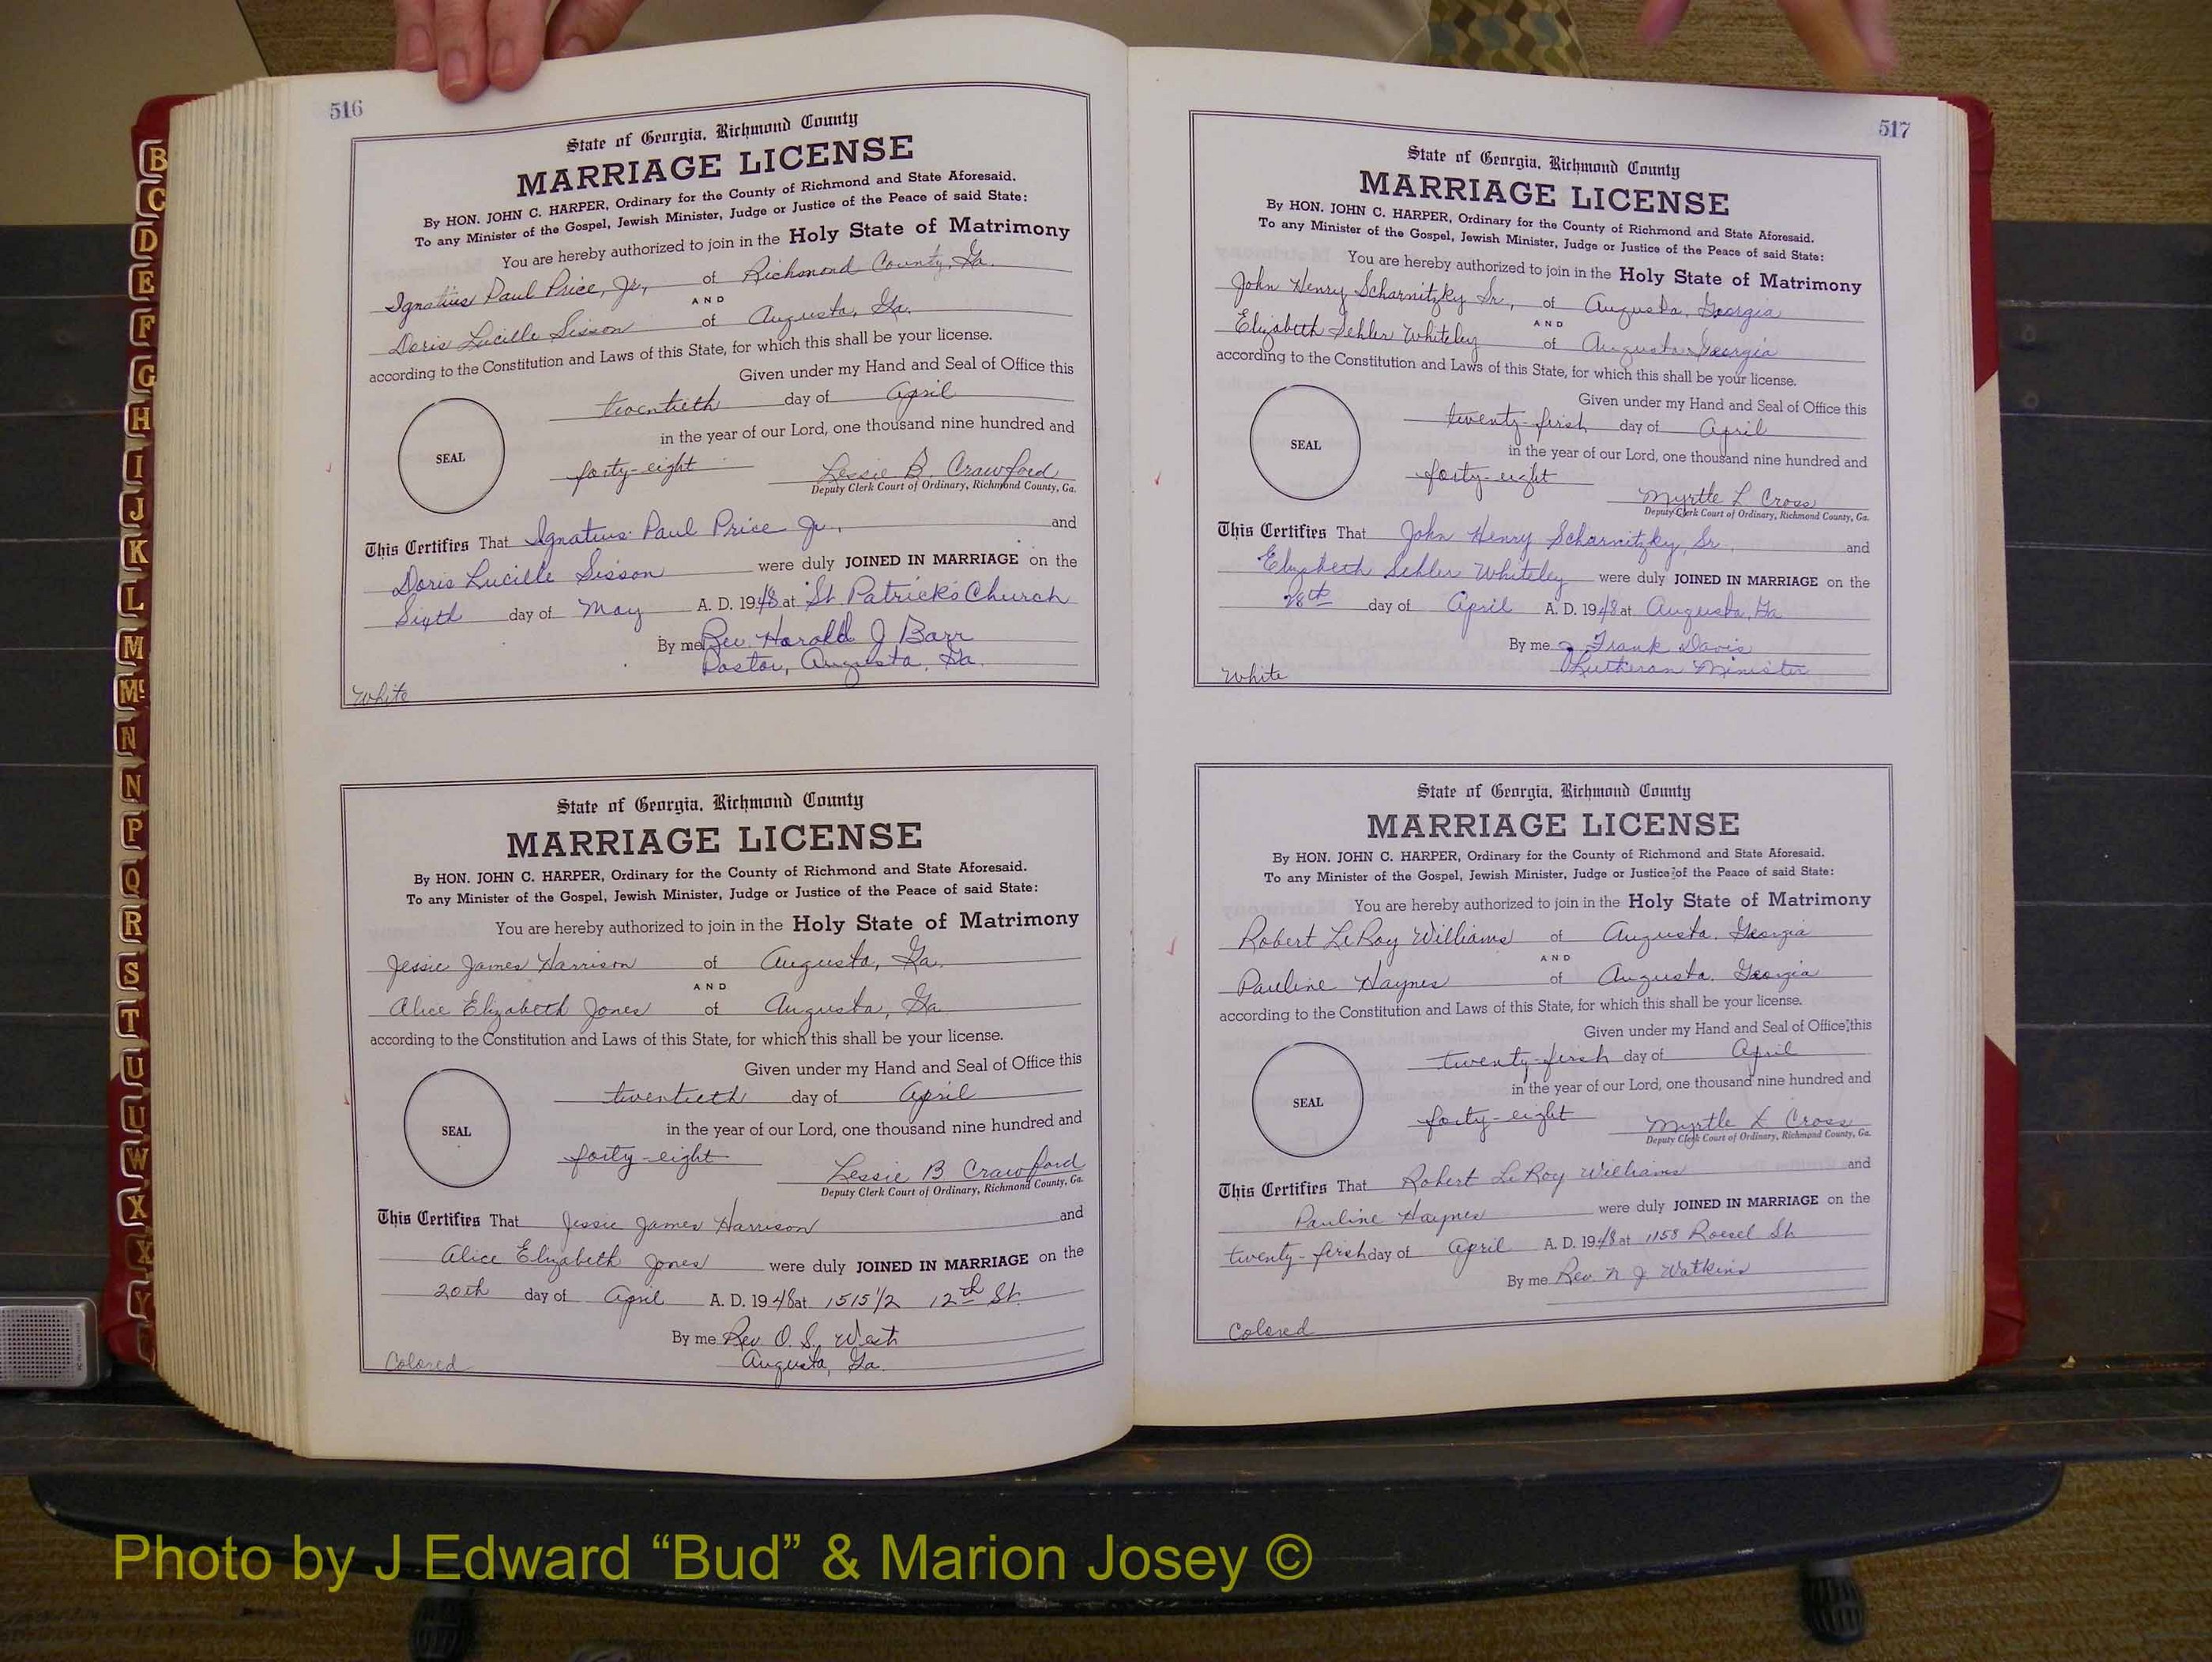 516
State of Georgia, Richmond County
MARRIAGE LICENSE
By HON. JOHN C. HARPER, Ordinary for the County of Richmond and State Aforesaid.
To any Minister of the Gospel, Jewish Minister, Judge or Justice of the Peace of said State:
You are hereby authorized to join in the Holy State of Matrimony
Ignatius Paul Price, Jr., of Richmond County, Ga.
AND
Doris Lucille Sisson of Augusta, Ga.
according to the Constitution and Laws of this State, for which this shall be your license.
Given under my Hand and Seal of Office this
twentieth day of April
in the year of our Lord, one thousand nine hundred and
SEAL
forty-eight Lessie B. Crawford
Deputy Clerk Court of Ordinary, Richmond County, Ga.
This Certifies That Ignatius Paul Price Jr., and
Doris Lucille Sisson were duly JOINED IN MARRIAGE on the
Sixth day of May A. D. 1948 at St Patrick's Church
By me Rev. Harold J Barr
Pastor, Augusta, Ga.
White
State of Georgia, Richmond County
MARRIAGE LICENSE
By HON. JOHN C. HARPER, Ordinary for the County of Richmond and State Aforesaid.
To any Minister of the Gospel, Jewish Minister, Judge or Justice of the Peace of said State:
You are hereby authorized to join in the Holy State of Matrimony
Jessie James Harrison of Augusta, Ga.
AND
Alice Elizabeth Jones of Augusta, Ga
according to the Constitution and Laws of this State, for which this shall be your license.
Given under my Hand and Seal of Office this
twentieth day of April
in the year of our Lord, one thousand nine hundred and
SEAL
forty-eight Lessie B Crawford
Deputy Clerk Court of Ordinary, Richmond County, Ga.
This Certifies That Jessie James Harrison and
Alice Elizabeth Jones were duly JOINED IN MARRIAGE on the
20th day of April A. D. 1948 at 1515 1/2 12th St.
By me Rev. O. S. West
Augusta, Ga.
Colored
517
State of Georgia, Richmond County
MARRIAGE LICENSE
By HON. JOHN C. HARPER, Ordinary for the County of Richmond and State Aforesaid.
To any Minister of the Gospel, Jewish Minister, Judge or Justice of the Peace of said State:
You are hereby authorized to join in the Holy State of Matrimony
John Henry Scharnitzky Sr., of Augusta, Georgia
AND
Elizabeth Sehler Whiteley of Augusta Georgia
according to the Constitution and Laws of this State, for which this shall be your license.
Given under my Hand and Seal of Office this
twenty-first day of April
in the year of our Lord, one thousand nine hundred and
SEAL
forty-eight Myrtle L Cross
Deputy Clerk Court of Ordinary, Richmond County, Ga.
This Certifies That John Henry Scharnitzky, Sr. and
Elizabeth Sehler Whiteley were duly JOINED IN MARRIAGE on the
28th day of April A. D. 1948 at Augusta, Ga
By me Frank Davis
Lutheran Minister
White
State of Georgia, Richmond County
MARRIAGE LICENSE
By HON. JOHN C. HARPER, Ordinary for the County of Richmond and State Aforesaid.
To any Minister of the Gospel, Jewish Minister, Judge or Justice of the Peace of said State:
You are hereby authorized to join in the Holy State of Matrimony
Robert LeRoy Williams of Augusta, Georgia
AND
Pauline Haynes of Augusta, Georgia
according to the Constitution and Laws of this State, for which this shall be your license.
Given under my Hand and Seal of Office this
twenty-first day of April
in the year of our Lord, one thousand nine hundred and
SEAL
forty-eight Myrtle L Cross
Deputy Clerk Court of Ordinary, Richmond County, Ga.
This Certifies That Robert LeRoy Williams and
Pauline Haynes were duly JOINED IN MARRIAGE on the
twenty-first day of April A. D. 1948 at 1158 Roesel St.
By me Rev. N J Watkins
Colored
B
C
D
E
F
G
H
I
J
K
L
M
Mc
N
N
P
Q
R
S
T
U
U
W
X
X
Y
Photo by J Edward “Bud” & Marion Josey ©